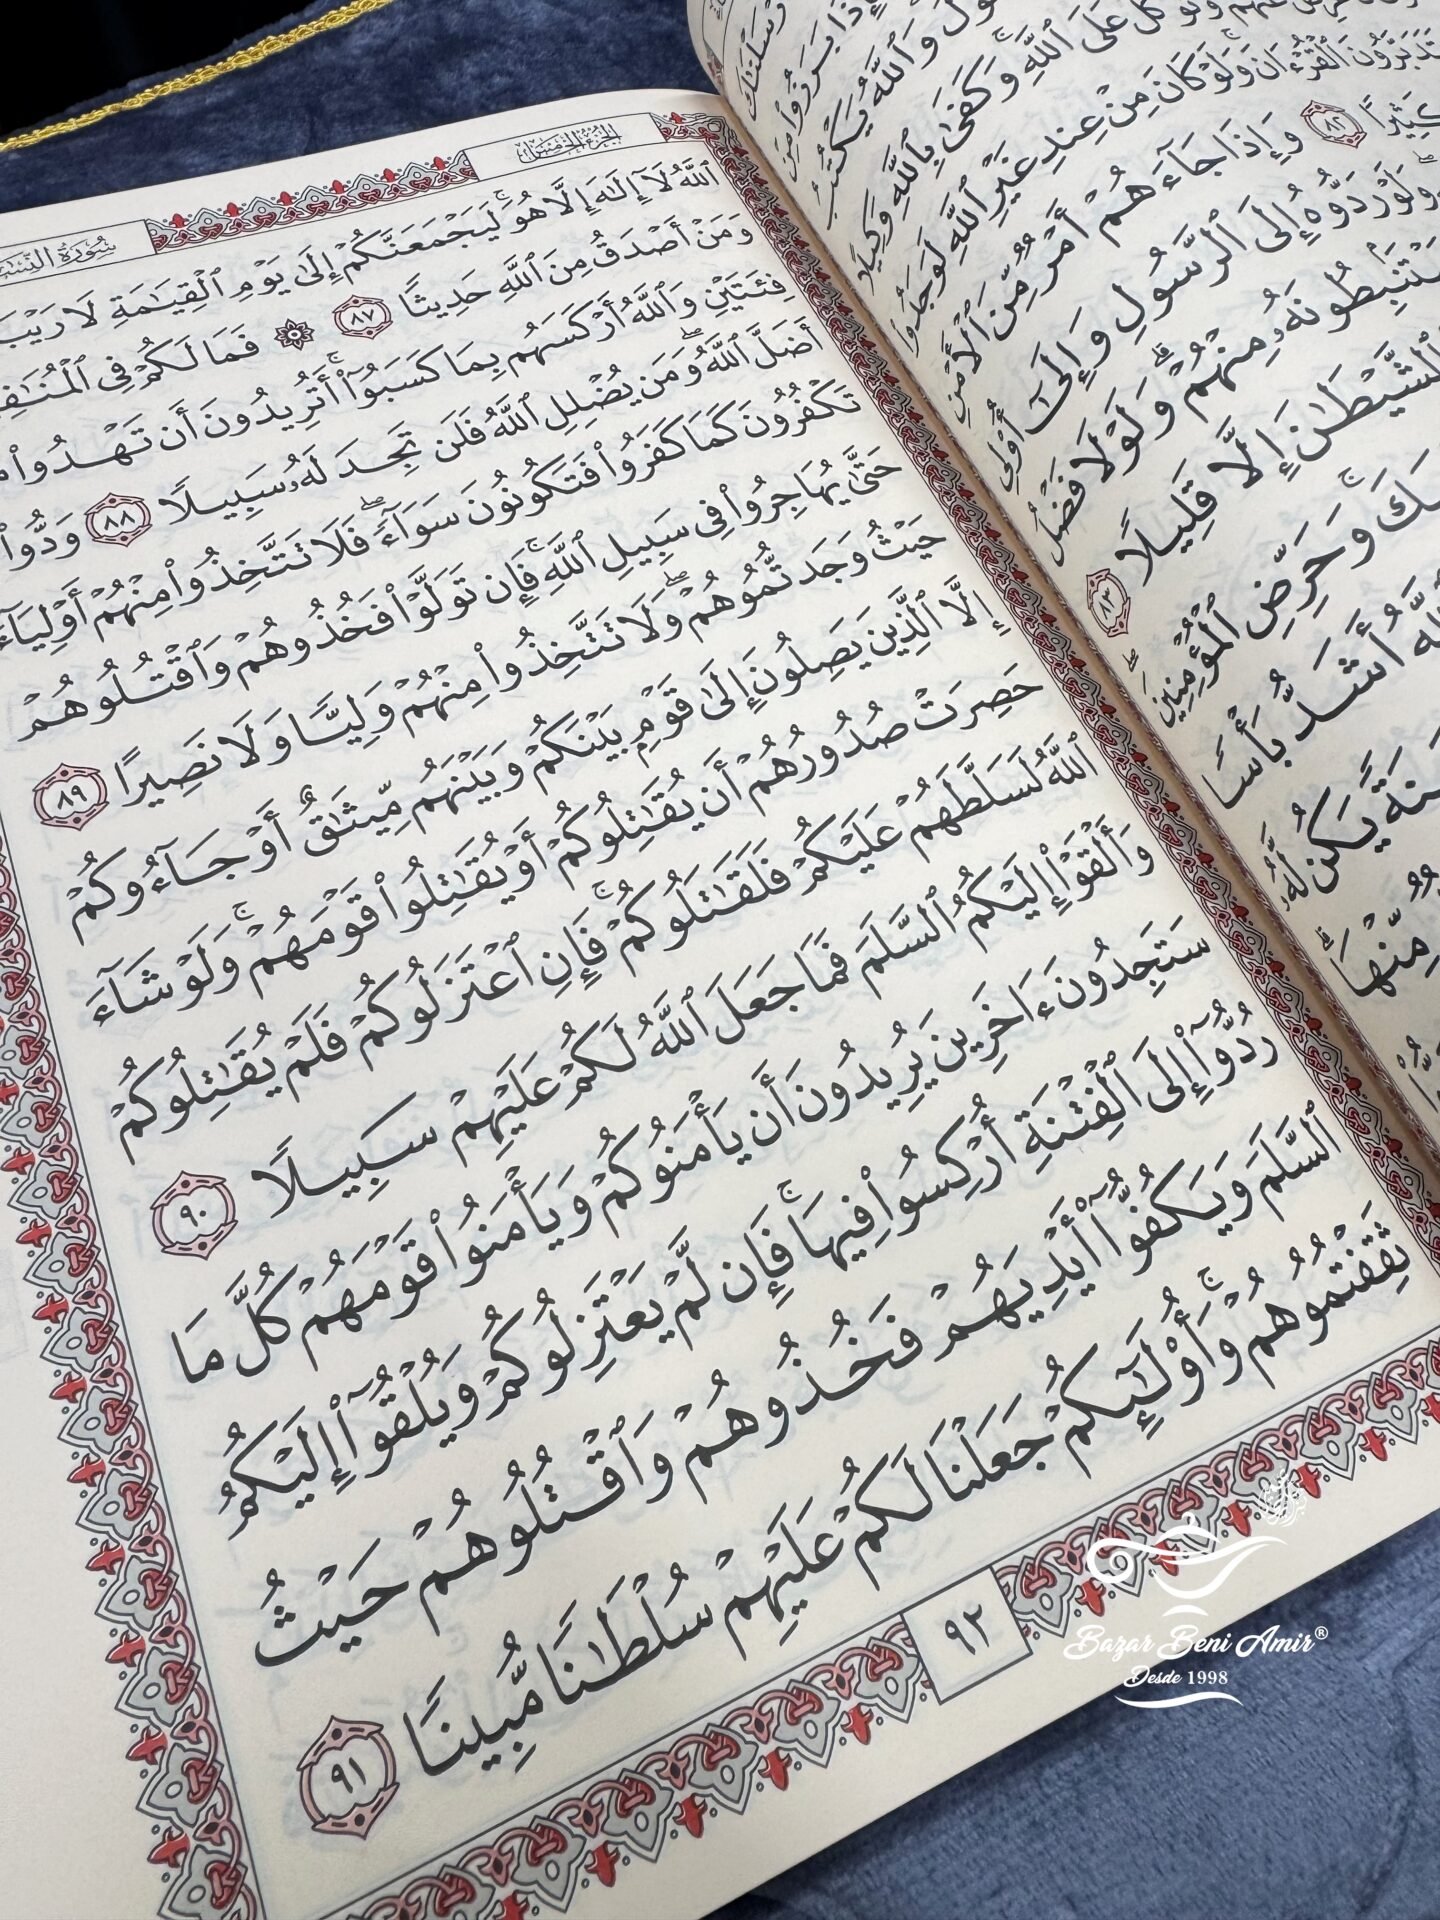 وَسَلْنَاكَ
إِذَا بَرَزُوا۟ مِنْ
وَٱللَّهُ يَكْتُبُ
كَّلْ عَلَى ٱللَّهِ ۚ وَكَفَىٰ بِٱللَّهِ وَكِيلًا
تَدَبَّرُونَ ٱلْقُرْءَانَ ۚ وَلَوْ كَانَ مِنْ عِندِ غَيْرِ ٱللَّهِ لَوَجَدُوا۟
كَثِيرًا ٨٢ وَإِذَا جَآءَهُمْ أَمْرٌ مِّنَ ٱلْأَمْنِ
وَلَوْ رَدُّوهُ إِلَى ٱلرَّسُولِ وَإِلَىٰٓ أُو۟لِى
سْتَنۢبِطُونَهُۥ مِنْهُمْ ۗ وَلَوْلَا فَضْلُ
ٱلشَّيْطَٰنَ إِلَّا قَلِيلًا ٨٣
سَكَ ۚ وَحَرِّضِ ٱلْمُؤْمِنِينَ ۖ
للَّهُ أَشَدُّ بَأْسًا
سَنَةً يَكُن لَّهُۥ
مِّنْهَا ۗ
سُورَةُ النِّسَاءِ
الجُزْءُ الخَامِسُ
ٱللَّهُ لَآ إِلَٰهَ إِلَّا هُوَ ۚ لَيَجْمَعَنَّكُمْ إِلَىٰ يَوْمِ ٱلْقِيَٰمَةِ لَا رَيْبَ
وَمَنْ أَصْدَقُ مِنَ ٱللَّهِ حَدِيثًا ٨٧ ۞ فَمَا لَكُمْ فِى ٱلْمُنَٰفِ
فِئَتَيْنِ وَٱللَّهُ أَرْكَسَهُم بِمَا كَسَبُوٓا۟ ۚ أَتُرِيدُونَ أَن تَهْدُوا۟ مَ
أَضَلَّ ٱللَّهُ ۖ وَمَن يُضْلِلِ ٱللَّهُ فَلَن تَجِدَ لَهُۥ سَبِيلًا ٨٨ وَدُّوا۟
تَكْفُرُونَ كَمَا كَفَرُوا۟ فَتَكُونُونَ سَوَآءً ۖ فَلَا تَتَّخِذُوا۟ مِنْهُمْ أَوْلِيَآءَ
حَتَّىٰ يُهَاجِرُوا۟ فِى سَبِيلِ ٱللَّهِ ۚ فَإِن تَوَلَّوْا۟ فَخُذُوهُمْ وَٱقْتُلُوهُمْ
حَيْثُ وَجَدتُّمُوهُمْ ۖ وَلَا تَتَّخِذُوا۟ مِنْهُمْ وَلِيًّا وَلَا نَصِيرًا ٨٩
إِلَّا ٱلَّذِينَ يَصِلُونَ إِلَىٰ قَوْمٍۭ بَيْنَكُمْ وَبَيْنَهُم مِّيثَٰقٌ أَوْ جَآءُوكُمْ
حَصِرَتْ صُدُورُهُمْ أَن يُقَٰتِلُوكُمْ أَوْ يُقَٰتِلُوا۟ قَوْمَهُمْ ۚ وَلَوْ شَآءَ
ٱللَّهُ لَسَلَّطَهُمْ عَلَيْكُمْ فَلَقَٰتَلُوكُمْ ۚ فَإِنِ ٱعْتَزَلُوكُمْ فَلَمْ يُقَٰتِلُوكُمْ
وَأَلْقَوْا۟ إِلَيْكُمُ ٱلسَّلَمَ فَمَا جَعَلَ ٱللَّهُ لَكُمْ عَلَيْهِمْ سَبِيلًا ٩٠
سَتَجِدُونَ ءَاخَرِينَ يُرِيدُونَ أَن يَأْمَنُوكُمْ وَيَأْمَنُوا۟ قَوْمَهُمْ كُلَّ مَا
رُدُّوٓا۟ إِلَى ٱلْفِتْنَةِ أُرْكِسُوا۟ فِيهَا ۚ فَإِن لَّمْ يَعْتَزِلُوكُمْ وَيُلْقُوٓا۟ إِلَيْكُمُ
ٱلسَّلَمَ وَيَكُفُّوٓا۟ أَيْدِيَهُمْ فَخُذُوهُمْ وَٱقْتُلُوهُمْ حَيْثُ
ثَقِفْتُمُوهُمْ ۚ وَأُو۟لَٰٓئِكُمْ جَعَلْنَا لَكُمْ عَلَيْهِمْ سُلْطَٰنًا مُّبِينًا ٩١
٩٢
Bazar Beni Amir®
Desde 1998